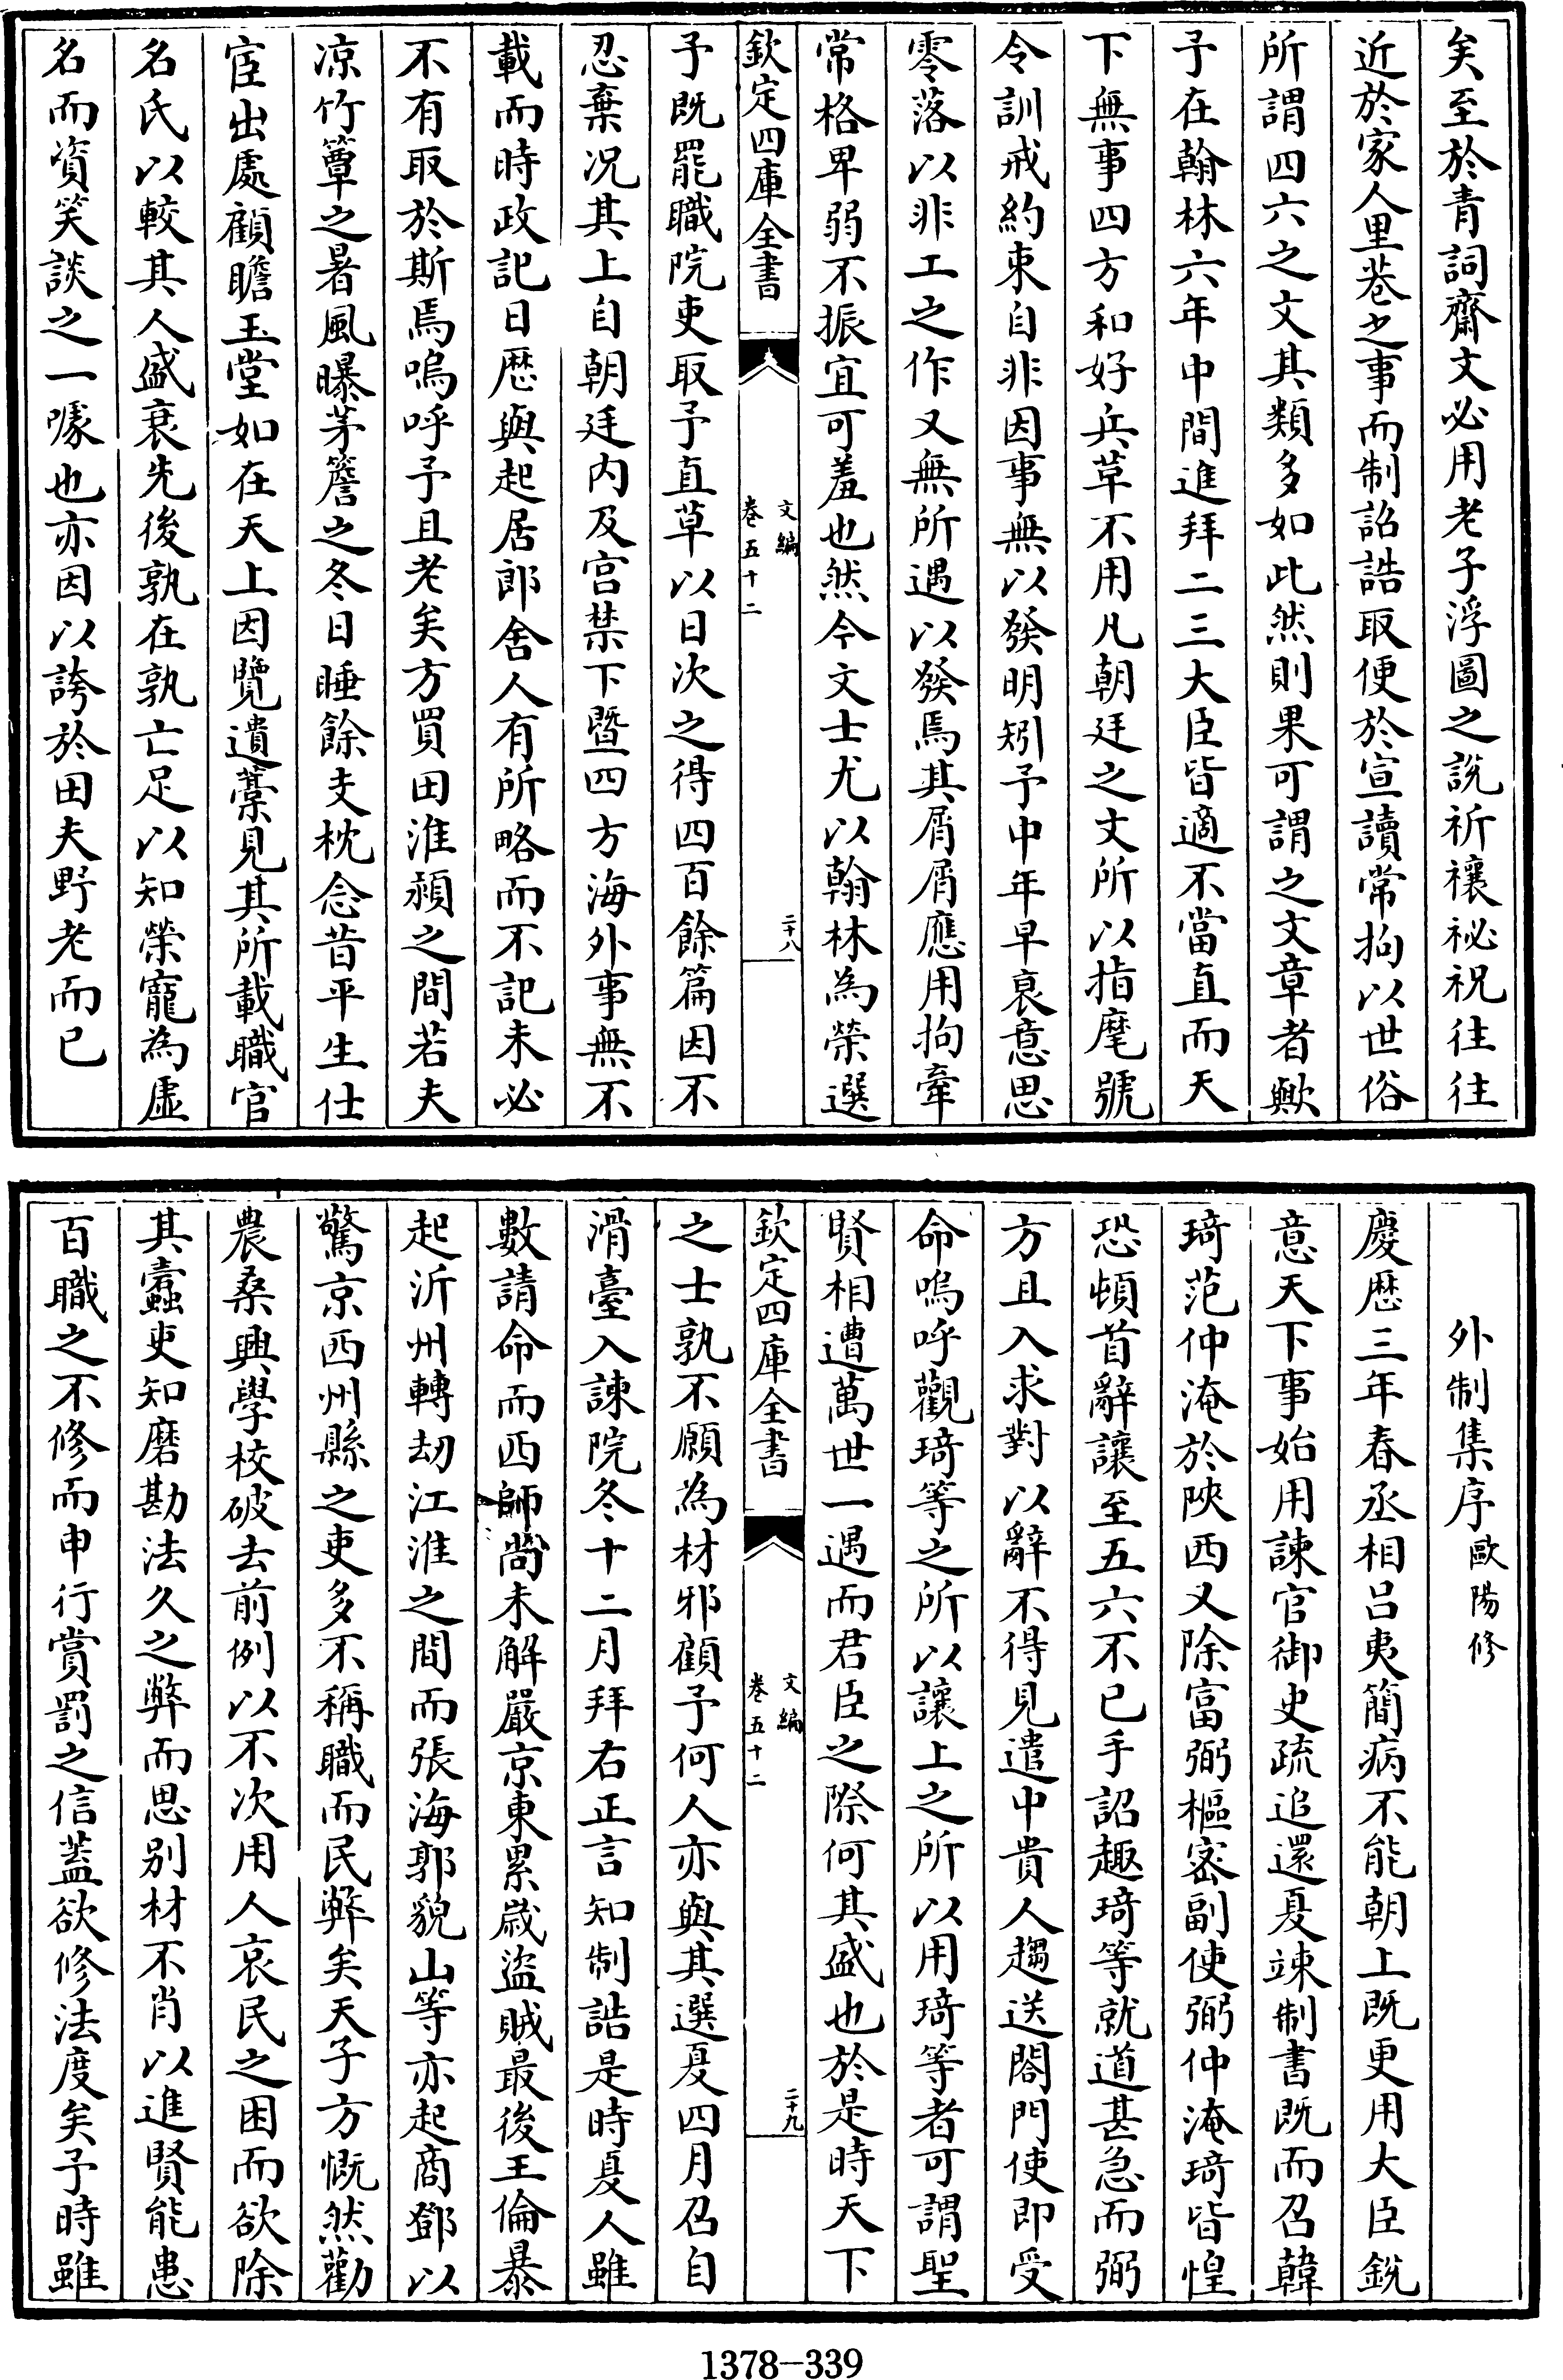 矣至於青詞齋文必用老子浮圖之說祈禳祕祝往往
近於家人里巷之事而制詔誥取便於宣讀常拘以世俗
所謂四六之文其類多如此然則果可謂之文章者歟
予在翰林六年中間進拜二三大臣皆適不當直而天
下無事四方和好兵革不用凡朝廷之文所以指麾號
令訓戒約束自非因事無以發明矧予中年早衰意思
零落以非工之作又無所遇以發焉其屑屑應用拘牽
常格卑弱不振宜可羞也然今文士尤以翰林為榮選
欽定四庫全書
文編
卷五十二
二十八
予既罷職院吏取予直草以日次之得四百餘篇因不
忍棄况其上自朝廷内及宫禁下暨四方海外事無不
載而時政記日厯與起居郎舍人有所略而不記未必
不有取於斯焉嗚呼予且老矣方買田淮潁之間若夫
凉竹簟之暑風曝茅簷之冬日睡餘支枕念昔平生仕
宦出處顧瞻玉堂如在天上因覽遺藁見其所載職官
名氏以較其人盛衰先後孰在孰亡足以知榮寵為虛
名而資笑談之一噱也亦因以誇於田夫野老而已
外制集序歐陽修
慶厯三年春丞相吕夷簡病不能朝上既更用大臣銳
意天下事始用諫官御史疏追還夏竦制書既而召韓
琦范仲淹於陜西又除富弼樞密副使弼仲淹琦皆惶
恐頓首辭讓至五六不已手詔趣琦等就道甚急而弼
方且入求對以辭不得見遣中貴人趨送閤門使即受
命嗚呼觀琦等之所以讓上之所以用琦等者可謂聖
賢相遭萬世一遇而君臣之際何其盛也於是時天下
欽定四庫全書
文編
卷五十二
二十九
之士孰不願為材邪顧予何人亦與其選夏四月召自
滑臺入諫院冬十二月拜右正言知制誥是時夏人雖
數請命而西師尚未解嚴京東累嵗盜賊最後王倫暴
起沂州轉刼江淮之間而張海郭貌山等亦起商鄧以
驚京西州縣之吏多不稱職而民弊矣天子方慨然勸
農桑興學校破去前例以不次用人哀民之困而欲除
其蠧吏知磨勘法久之弊而思别材不肖以進賢能患
百職之不修而申行賞罰之信蓋欲修法度矣予時雖
1378-339